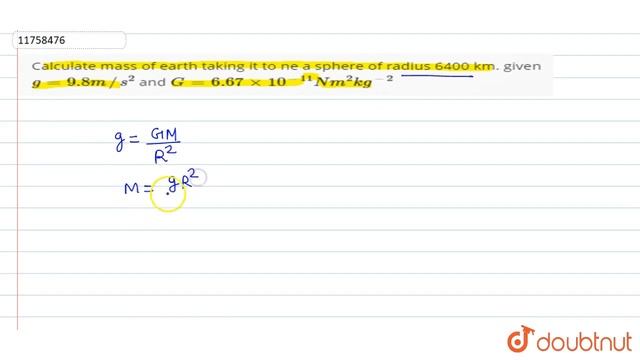 11758476
Calculate mass of earth taking it to ne a sphere of radius 6400 km. given
g = 9.8m / s² and G = 6.67 × 10⁻¹¹Nm²kg⁻²
g = GM / R²
M = gR²
doubtnut